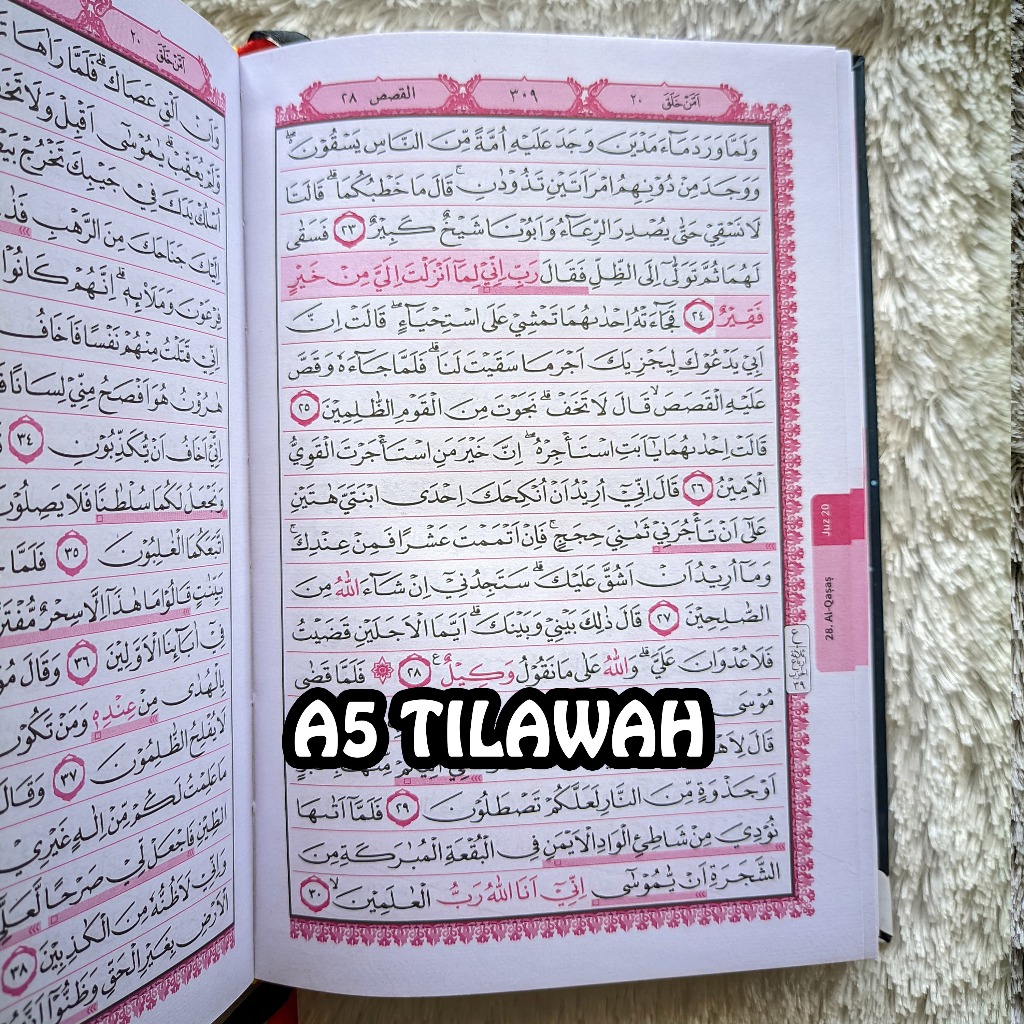 اَمَّنْ خَلَقَ ٢٠
٣٠٩
القصص ٢٨
وَلَمَّا وَرَدَ مَاۤءَ مَدْيَنَ وَجَدَ عَلَيْهِ اُمَّةً مِّنَ النَّاسِ يَسْقُوْنَ ەۖ
وَوَجَدَ مِنْ دُوْنِهِمُ امْرَاَتَيْنِ تَذُوْدٰنِۚ قَالَ مَا خَطْبُكُمَاۗ قَالَتَا
لَا نَسْقِيْ حَتّٰى يُصْدِرَ الرِّعَاۤءُ وَاَبُوْنَا شَيْخٌ كَبِيْرٌ ٢٣ فَسَقٰى
لَهُمَا ثُمَّ تَوَلّٰىٓ اِلَى الظِّلِّ فَقَالَ رَبِّ اِنِّيْ لِمَآ اَنْزَلْتَ اِلَيَّ مِنْ خَيْرٍ
فَقِيْرٌ ٢٤ فَجَاۤءَتْهُ اِحْدٰىهُمَا تَمْشِيْ عَلَى اسْتِحْيَاۤءٍۖ قَالَتْ اِنَّ
اَبِيْ يَدْعُوْكَ لِيَجْزِيَكَ اَجْرَ مَا سَقَيْتَ لَنَاۗ فَلَمَّا جَاۤءَهٗ وَقَصَّ
عَلَيْهِ الْقَصَصَۙ قَالَ لَا تَخَفْۗ نَجَوْتَ مِنَ الْقَوْمِ الظّٰلِمِيْنَ ٢٥
قَالَتْ اِحْدٰىهُمَا يٰٓاَبَتِ اسْتَأْجِرْهُۖ اِنَّ خَيْرَ مَنِ اسْتَأْجَرْتَ الْقَوِيُّ
الْاَمِيْنُ ٢٦ قَالَ اِنِّيْٓ اُرِيْدُ اَنْ اُنْكِحَكَ اِحْدَى ابْنَتَيَّ هٰتَيْنِ
عَلٰٓى اَنْ تَأْجُرَنِيْ ثَمٰنِيَ حِجَجٍۚ فَاِنْ اَتْمَمْتَ عَشْرًا فَمِنْ عِنْدِكَۚ
وَمَآ اُرِيْدُ اَنْ اَشُقَّ عَلَيْكَۗ سَتَجِدُنِيْٓ اِنْ شَاۤءَ اللّٰهُ مِنَ
الصّٰلِحِيْنَ ٢٧ قَالَ ذٰلِكَ بَيْنِيْ وَبَيْنَكَۗ اَيَّمَا الْاَجَلَيْنِ قَضَيْتُ
فَلَا عُدْوَانَ عَلَيَّۗ وَاللّٰهُ عَلٰى مَا نَقُوْلُ وَكِيْلٌ ࣖ ٢٨ ۞ فَلَمَّا قَضٰى
مُوْسَى
A5 TILAWAH
اَوْ جَذْوَةٍ مِّنَ النَّارِ لَعَلَّكُمْ تَصْطَلُوْنَ ٢٩ فَلَمَّآ اَتٰىهَا
نُوْدِيَ مِنْ شَاطِئِ الْوَادِ الْاَيْمَنِ فِى الْبُقْعَةِ الْمُبٰرَكَةِ مِنَ
الشَّجَرَةِ اَنْ يّٰمُوْسٰٓى اِنِّيْٓ اَنَا اللّٰهُ رَبُّ الْعٰلَمِيْنَۙ ٣٠
Juz 20
28. Al-Qaṣaṣ
اَمَّنْ خَلَقَ ٢٠
وَاَنْ اَلْقِ عَصَاكَۗ فَلَمَّا رَاٰهَا
وَّلَمْ يُعَقِّبْۗ يٰمُوْسٰٓى اَقْبِلْ وَلَا
اُسْلُكْ يَدَكَ فِيْ جَيْبِكَ تَخْرُجْ
اِلَيْكَ جَنَاحَكَ مِنَ الرَّهْبِ
فِرْعَوْنَ وَمَلَا۟ىِٕهٖۗ اِنَّهُمْ كَانُوْا
اِنِّيْ قَتَلْتُ مِنْهُمْ نَفْسًا فَاَخَافُ
هٰرُوْنُ هُوَ اَفْصَحُ مِنِّيْ لِسَانًا
اِنِّيْٓ اَخَافُ اَنْ يُّكَذِّبُوْنِ ٣٤
وَنَجْعَلُ لَكُمَا سُلْطٰنًا فَلَا يَصِلُوْنَ
اتَّبَعَكُمَا الْغٰلِبُوْنَ ٣٥ فَلَمَّا
بَيِّنٰتٍ قَالُوْا مَا هٰذَآ اِلَّا سِحْرٌ
فِيْٓ اٰبَاۤىِٕنَا الْاَوَّلِيْنَ ٣٦ وَقَالَ
بِالْهُدٰى مِنْ عِنْدِهٖ وَمَنْ تَكُوْنُ
لَا يُفْلِحُ الظّٰلِمُوْنَ ٣٧ وَقَالَ
مَا عَلِمْتُ لَكُمْ مِّنْ اِلٰهٍ غَيْرِيْ
الطِّيْنِ فَاجْعَلْ لِّيْ صَرْحًا
وَاِنِّيْ لَاَظُنُّهٗ مِنَ الْكٰذِبِيْنَ ٣٨
الْاَرْضِ بِغَيْرِ الْحَقِّ وَظَنُّوْٓا